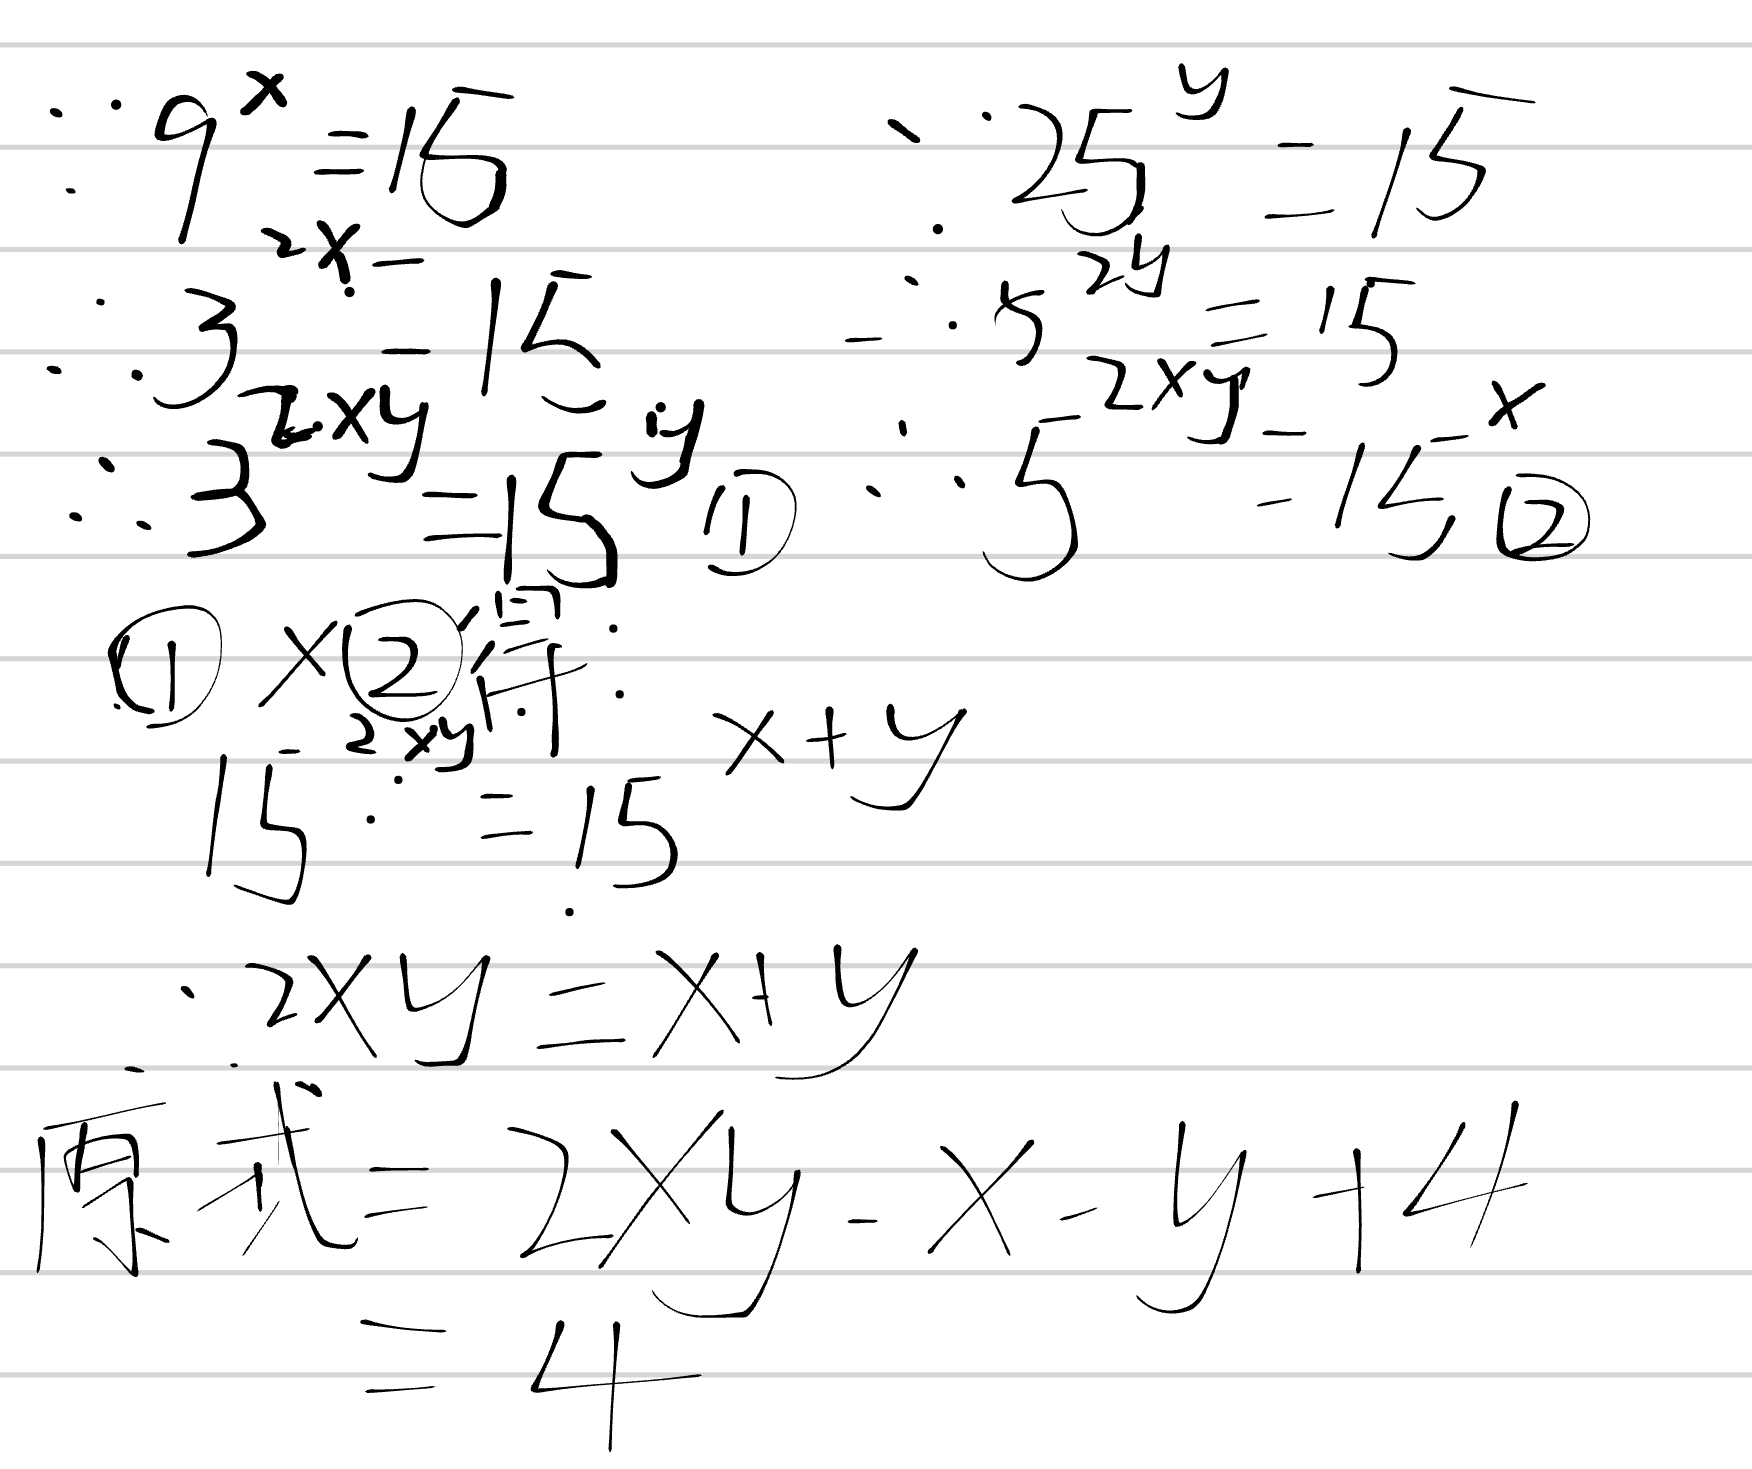 ∵9^x=15 ∵25^y=15
∴3^2x=15 ∴5^2y=15
∴3^2xy=15^y ① ∴5^2xy=15^x ②
①×②得:
15^2xy=15^x+y
∴2xy=x+y
原式=2xy-x-y+4
=4